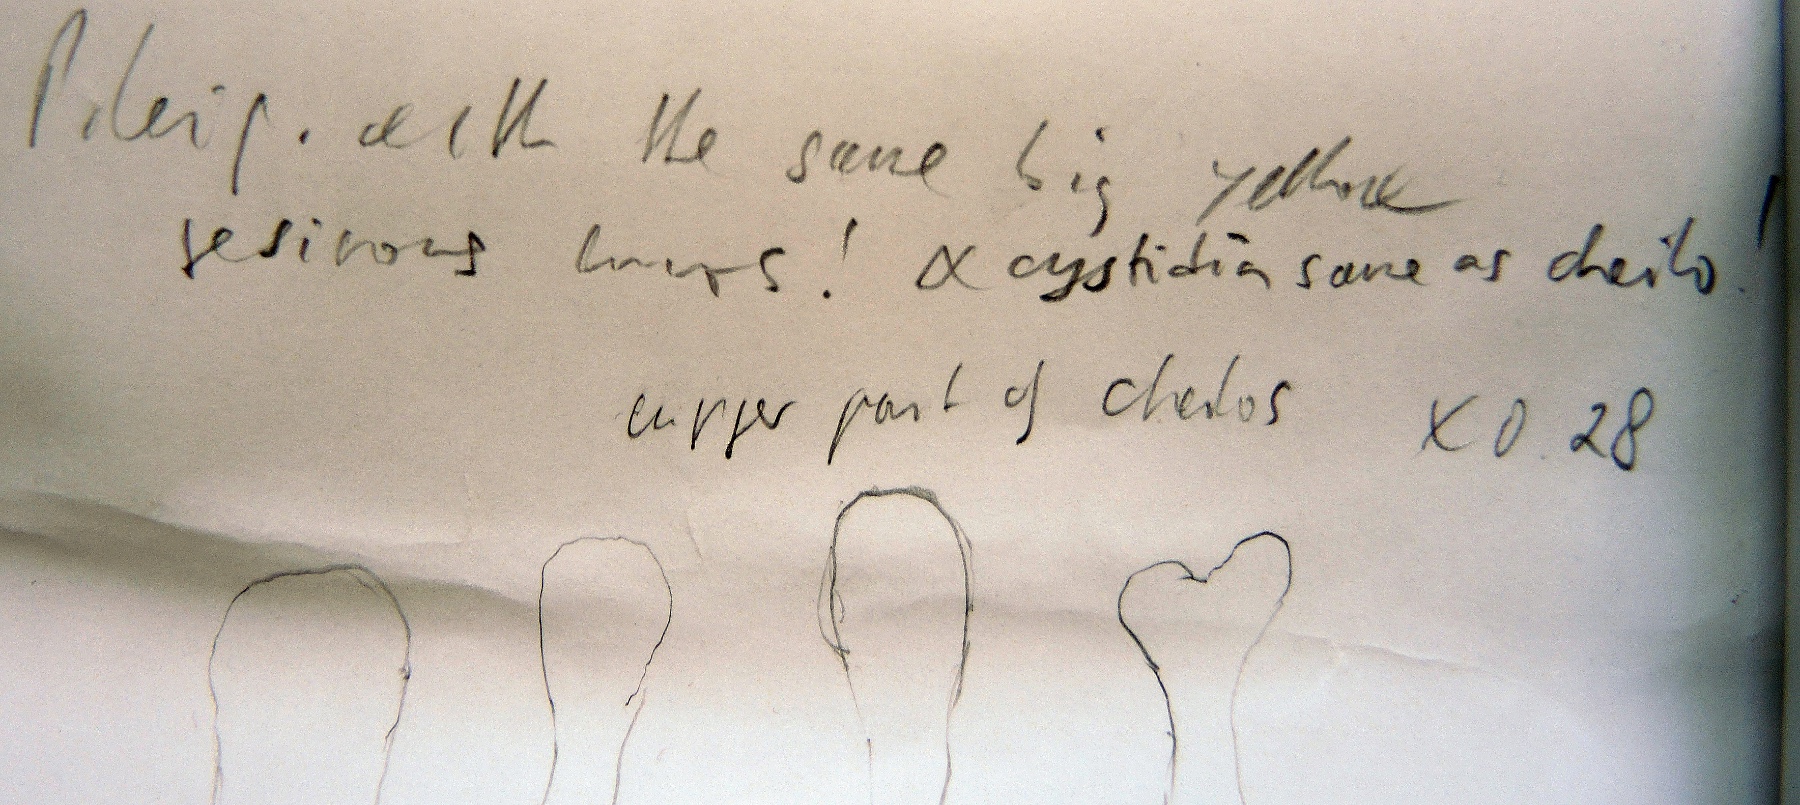 Pileip. with the same big yellow
resinous lumps! & cystidia same as cheilo!
upper part of cheilos x0.28